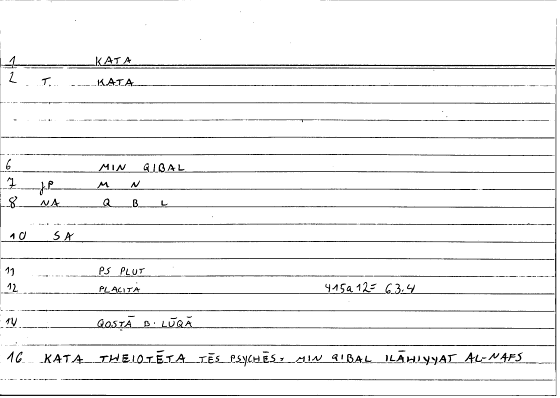 1 KATA
2 T. KATA
6 MIN QIBAL
7 JP M N
8 NA Q B L
10 SA
11 PS PLUT
12 PLACITA 415a12= 63.4
14 QOSṬĀ B. LŪQĀ
16 KATA THEIOTĒTA TĒS PSYCHĒS= MIN QIBAL ILĀHIYYAT AL-NAFS